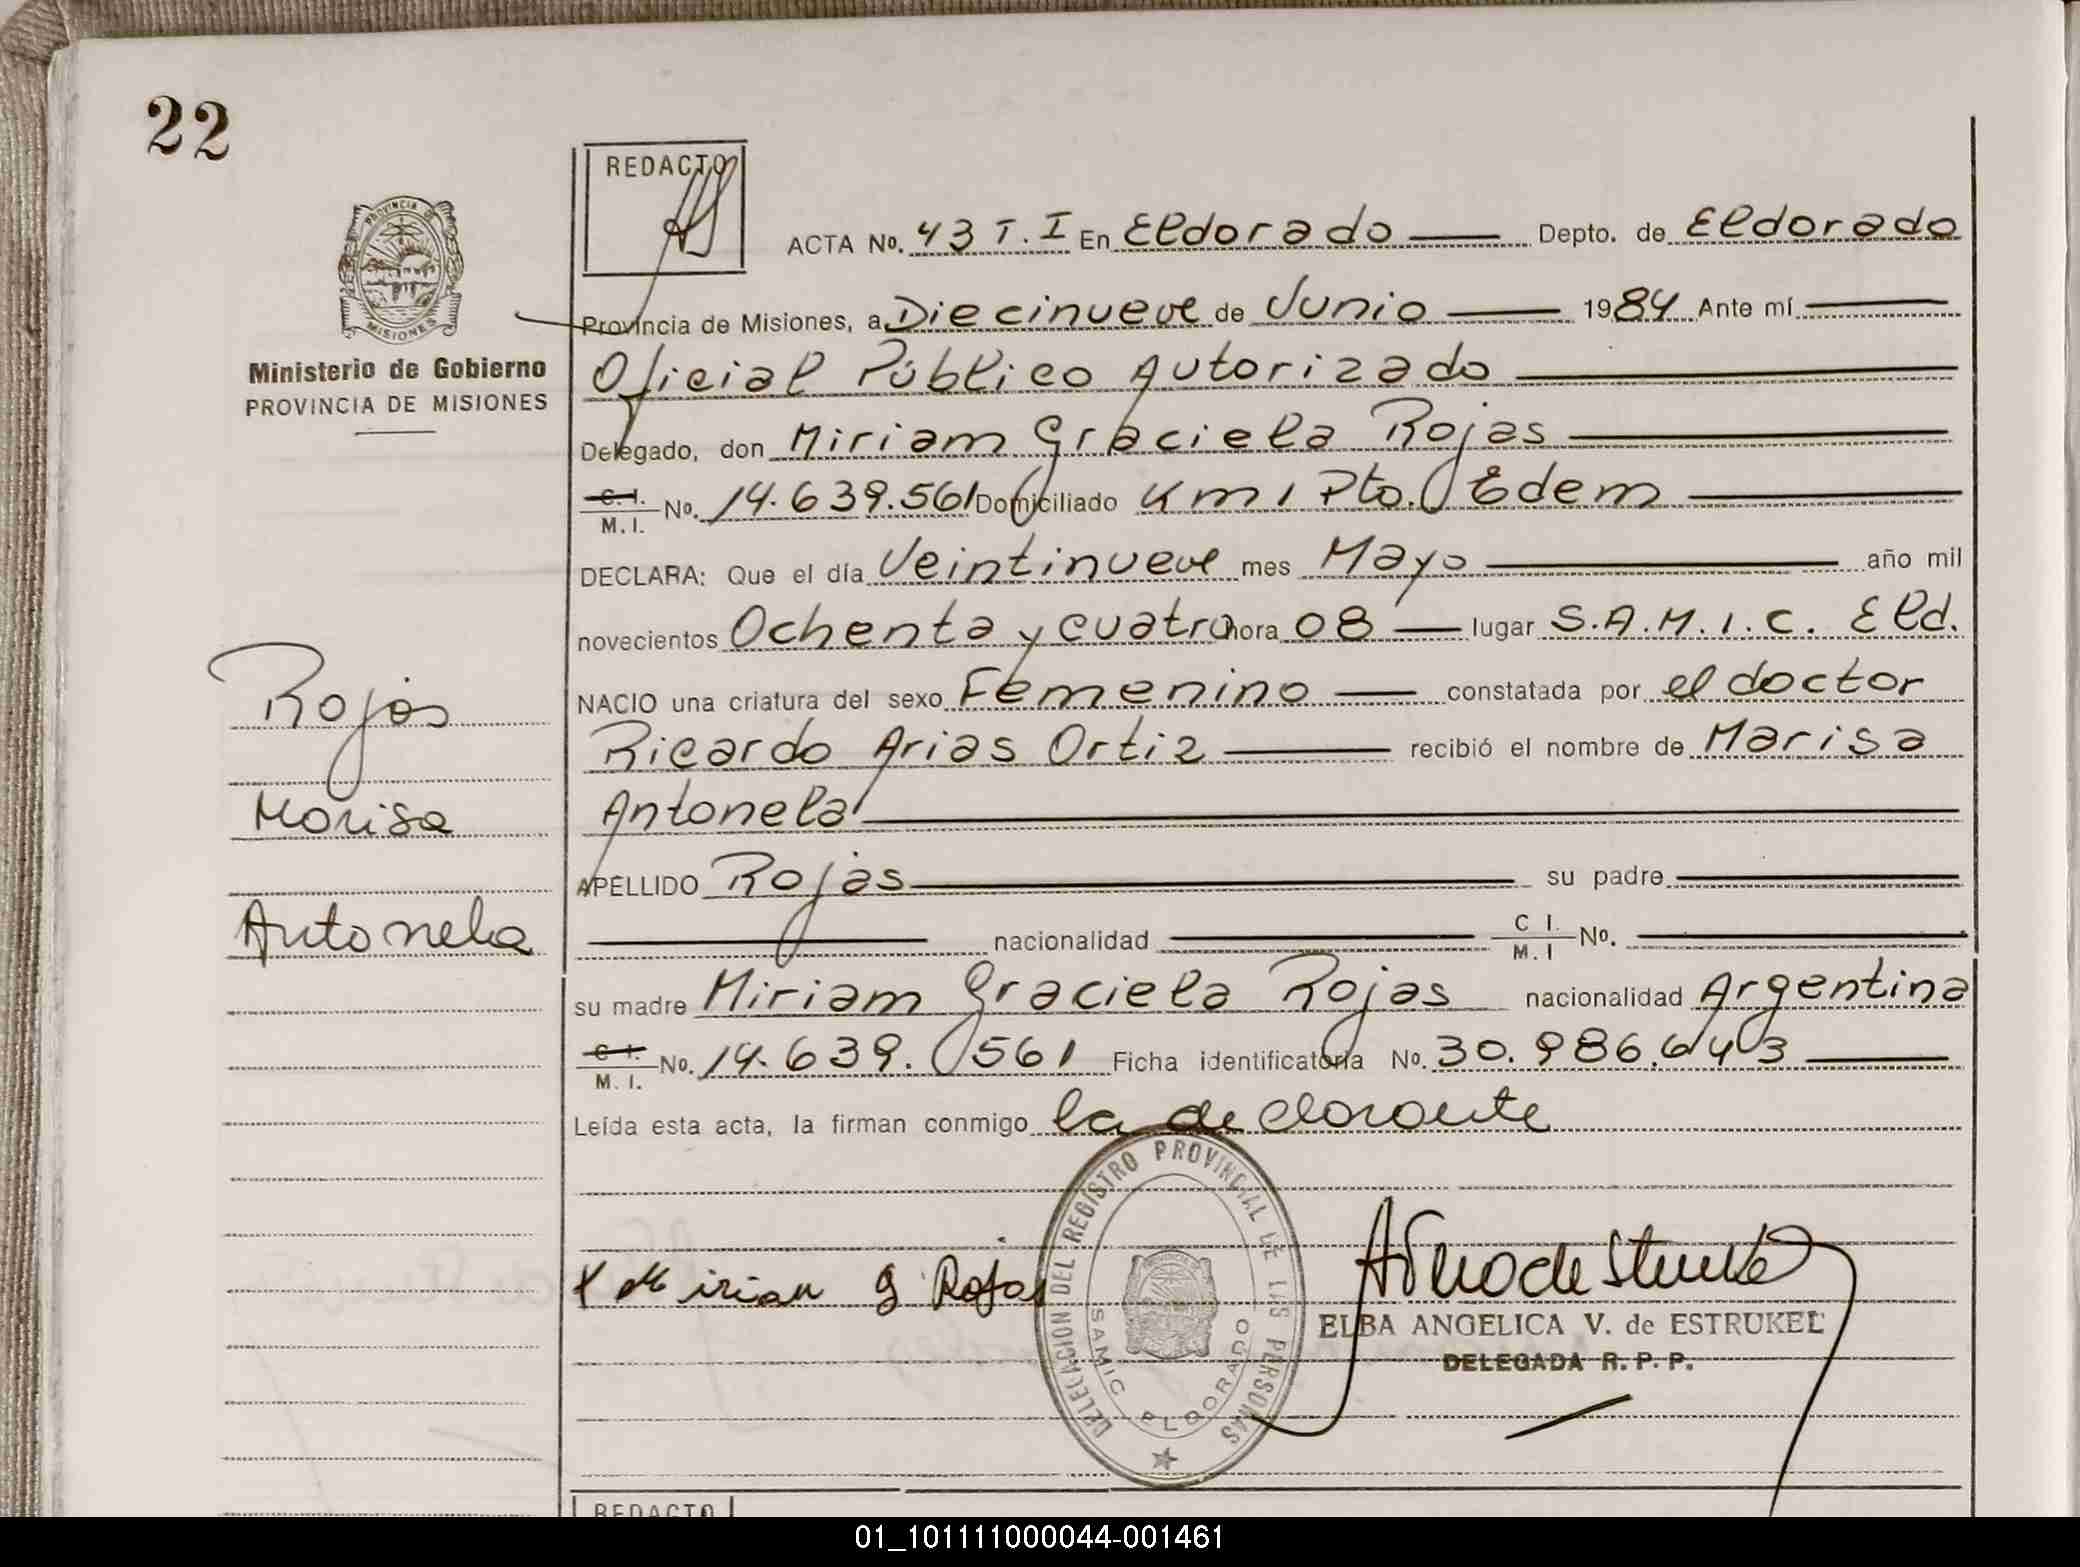 22
REDACTO
PROVINCIA DE
MISIONES
Ministerio de Gobierno
PROVINCIA DE MISIONES
ACTA No. 43 T. I En Eldorado Depto. de Eldorado
Provincia de Misiones, a Diecinueve de Junio 1984 Ante mí
Oficial Público Autorizado
Delegado, don Miriam Graciela Rojas
C. I. M. I. No. 14.639.561 Domiciliado Km 1 Pto. Edem
DECLARA: Que el día Veintinueve mes Mayo año mil
novecientos Ochenta y cuatro hora 08 lugar S.A.M.I.C. Eld.
NACIO una criatura del sexo Femenino constatada por el doctor
Ricardo Arias Ortiz recibió el nombre de Marisa
Antonela
APELLIDO Rojas su padre
nacionalidad C I. M. I No.
su madre Miriam Graciela Rojas nacionalidad Argentina
C. I. M. I. No. 14.639.561 Ficha identificatoria No. 30.986.643
Leída esta acta, la firman conmigo la declarante
Rojas
Marisa
Antonela
Mirian G Rojas
DELEGACION DEL REGISTRO PROVINCIAL DE LAS PERSONAS
SAMIC ELDORADO
ELBA ANGELICA V. de ESTRUKEL
DELEGADA R. P. P.
REDACTO
01_101111000044-001461